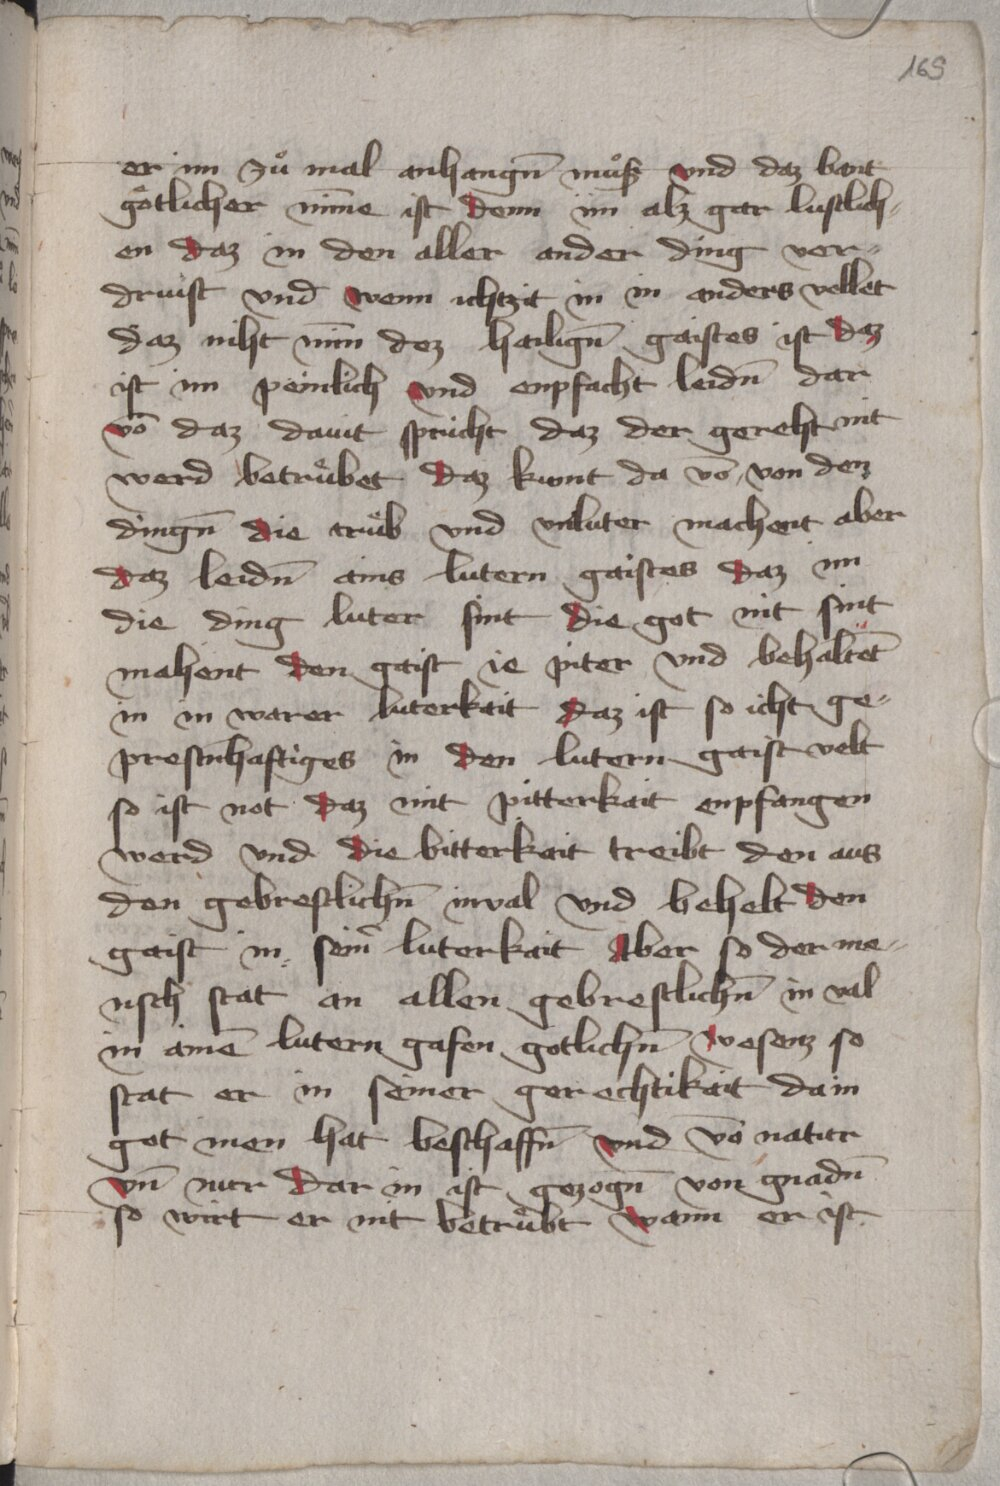 169
er im zů mal anhangn̄ můſz vnd daz bant
götlicher mīne iſt denn im alz gar luſtlich⸗
en daz in den aller ander ding ver⸗
druiſt vnd wenn ichtzit in in anders vellet
daz niht mīn dez hailign̄ gaiſtes iſt daz
iſt im peinlich vnd enpfacht leidn̄ dar
vō daz dauit ſpricht daz der gereht nit
werd betrůbet daz kumt da vō von den
dingn̄ die trůb vnd vnluter machent aber
daz leidn̄ ains lutern gaiſtes daz im
die ding luter ſint die got nit ſint
mahent den gaiſt ie piter vnd behaltēt
in in warer luterkait daz iſt ſo icht ge⸗
preſtnhaftiges in den lutern gaiſt velt
ſo iſt not daz mit pitterkait enpfangen
werd vnd die bitterkait treibt den aus
den gebreſtlichn̄ inval vnd behelt den
gaiſt in ſeinr̄ luterkait Aber ſo der me⸗
nſch ſtat an allen gebreſtlichn̄ in val
in aimē lutern gafen gotlichn̄ weſenz ſo
ſtat er in ſeiner gerechtikait da in
got inen hat beſchaffn̄ vnd vō natur
vn̄ nur dar in iſt gezogn̄ von gnadn̄
ſo wirt er nit betrůbt wann er iſt